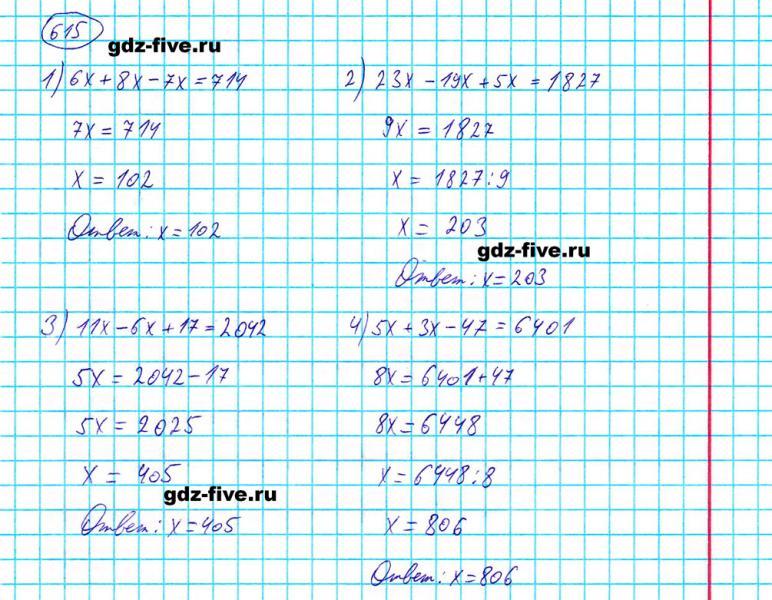 615
gdz-five.ru
1) 6x + 8x - 7x = 714
7x = 714
x = 102
Ответ: x = 102
2) 23x - 19x + 5x = 1827
9x = 1827
x = 1827 : 9
x = 203
gdz-five.ru
Ответ: x = 203
3) 11x - 6x + 17 = 2042
5x = 2042 - 17
5x = 2025
x = 405
gdz-five.ru
Ответ: x = 405
4) 5x + 3x - 47 = 6401
8x = 6401 + 47
8x = 6448
x = 6448 : 8
x = 806
Ответ: x = 806